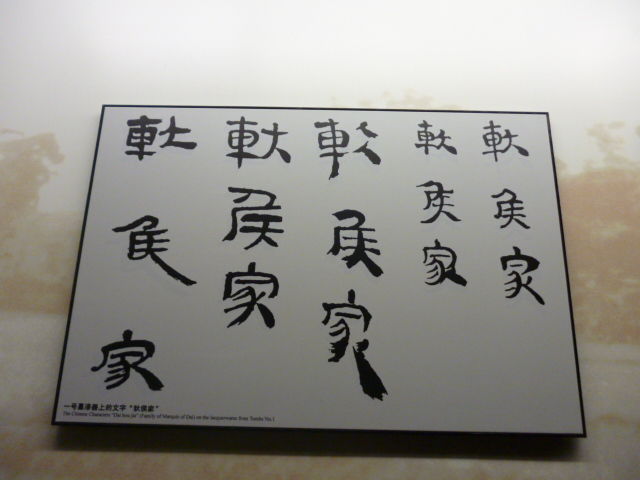 軑侯家
軑侯家
軑侯家
軑侯家
軑侯家
一号墓漆器上的文字“轪侯家”
The Chinese Characters "Dai hou jia" (Family of Marquis of Dai) on the lacquerwares from Tombs No.1